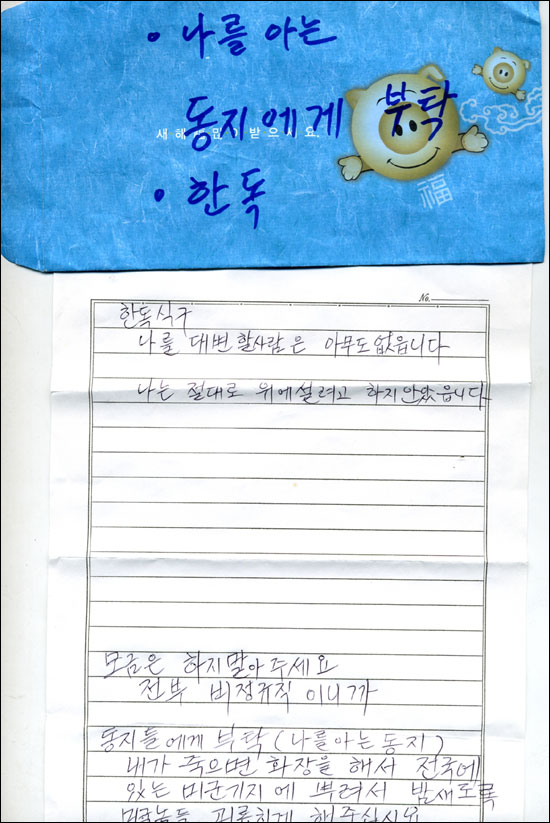 • 나를 아는
동지에게 부탁
새해 받으세요.
• 한독
福
No.
한독식구
나를 대변할사람은 아무도없읍니다
나는 절대로 위에설려고 하지안았읍니다
모금은 하지말아주세요
전부 비정규직이니까
동지들에게 부탁 (나를아는동지)
내가 죽으면 화장을 해서 전국에
있는 미군기지에 뿌려서 밤새도록
괴롭히게 해주십시요